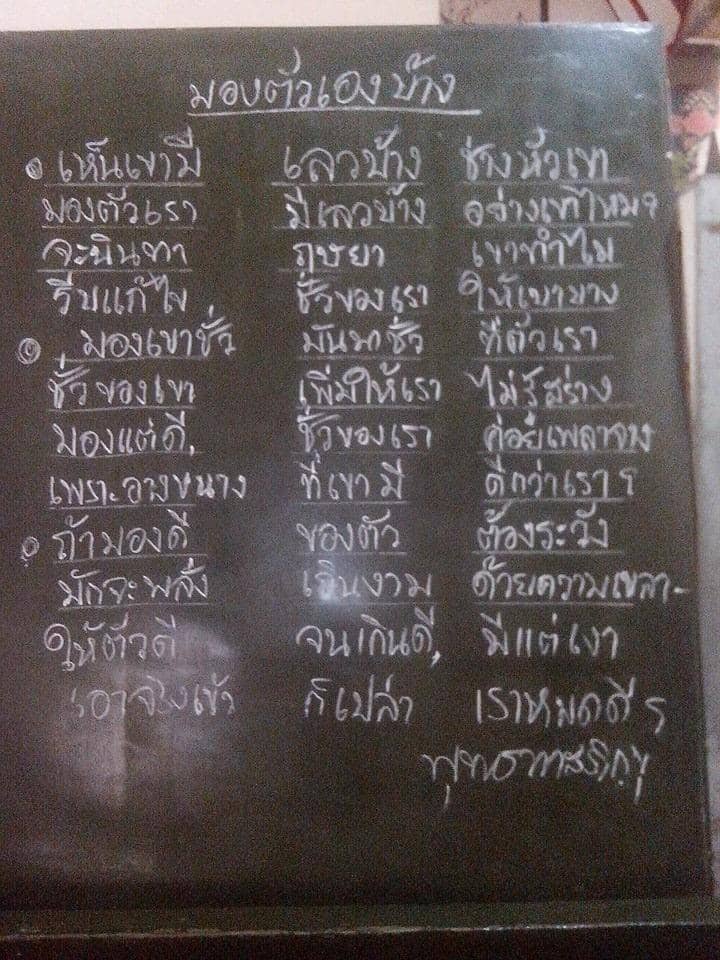 มองตัวเองบ้าง
เห็นเขามี เลวบ้าง ช่างหัวเขา
มองตัวเรา มีเลวบ้าง อย่างเขาไหม?
จะนินทา ฤษยา เขาทำไม
รีบแก้ไข ชั่วของเรา ให้เบาบาง
มองเขาชั่ว มันพาชั่ว ที่ตัวเรา
ชั่วของเขา เพิ่มให้เรา ไม่รู้สร่าง
มองแต่ดี, ชั่วของเรา ค่อยเพลาจาง
เพราะอางขนาง ที่เขามี ดีกว่าเรา ฯ
ถ้ามองดี ของตัว ต้องระวัง
มักจะพลั่ง เกินงาม ด้วยความเขลา-
ให้ตัวดี จนเกินดี, มีแต่เงา
เอาจริงเข้า ก็เปล่า เราหมดดี ฯ
พุทธทาสภิกขุ